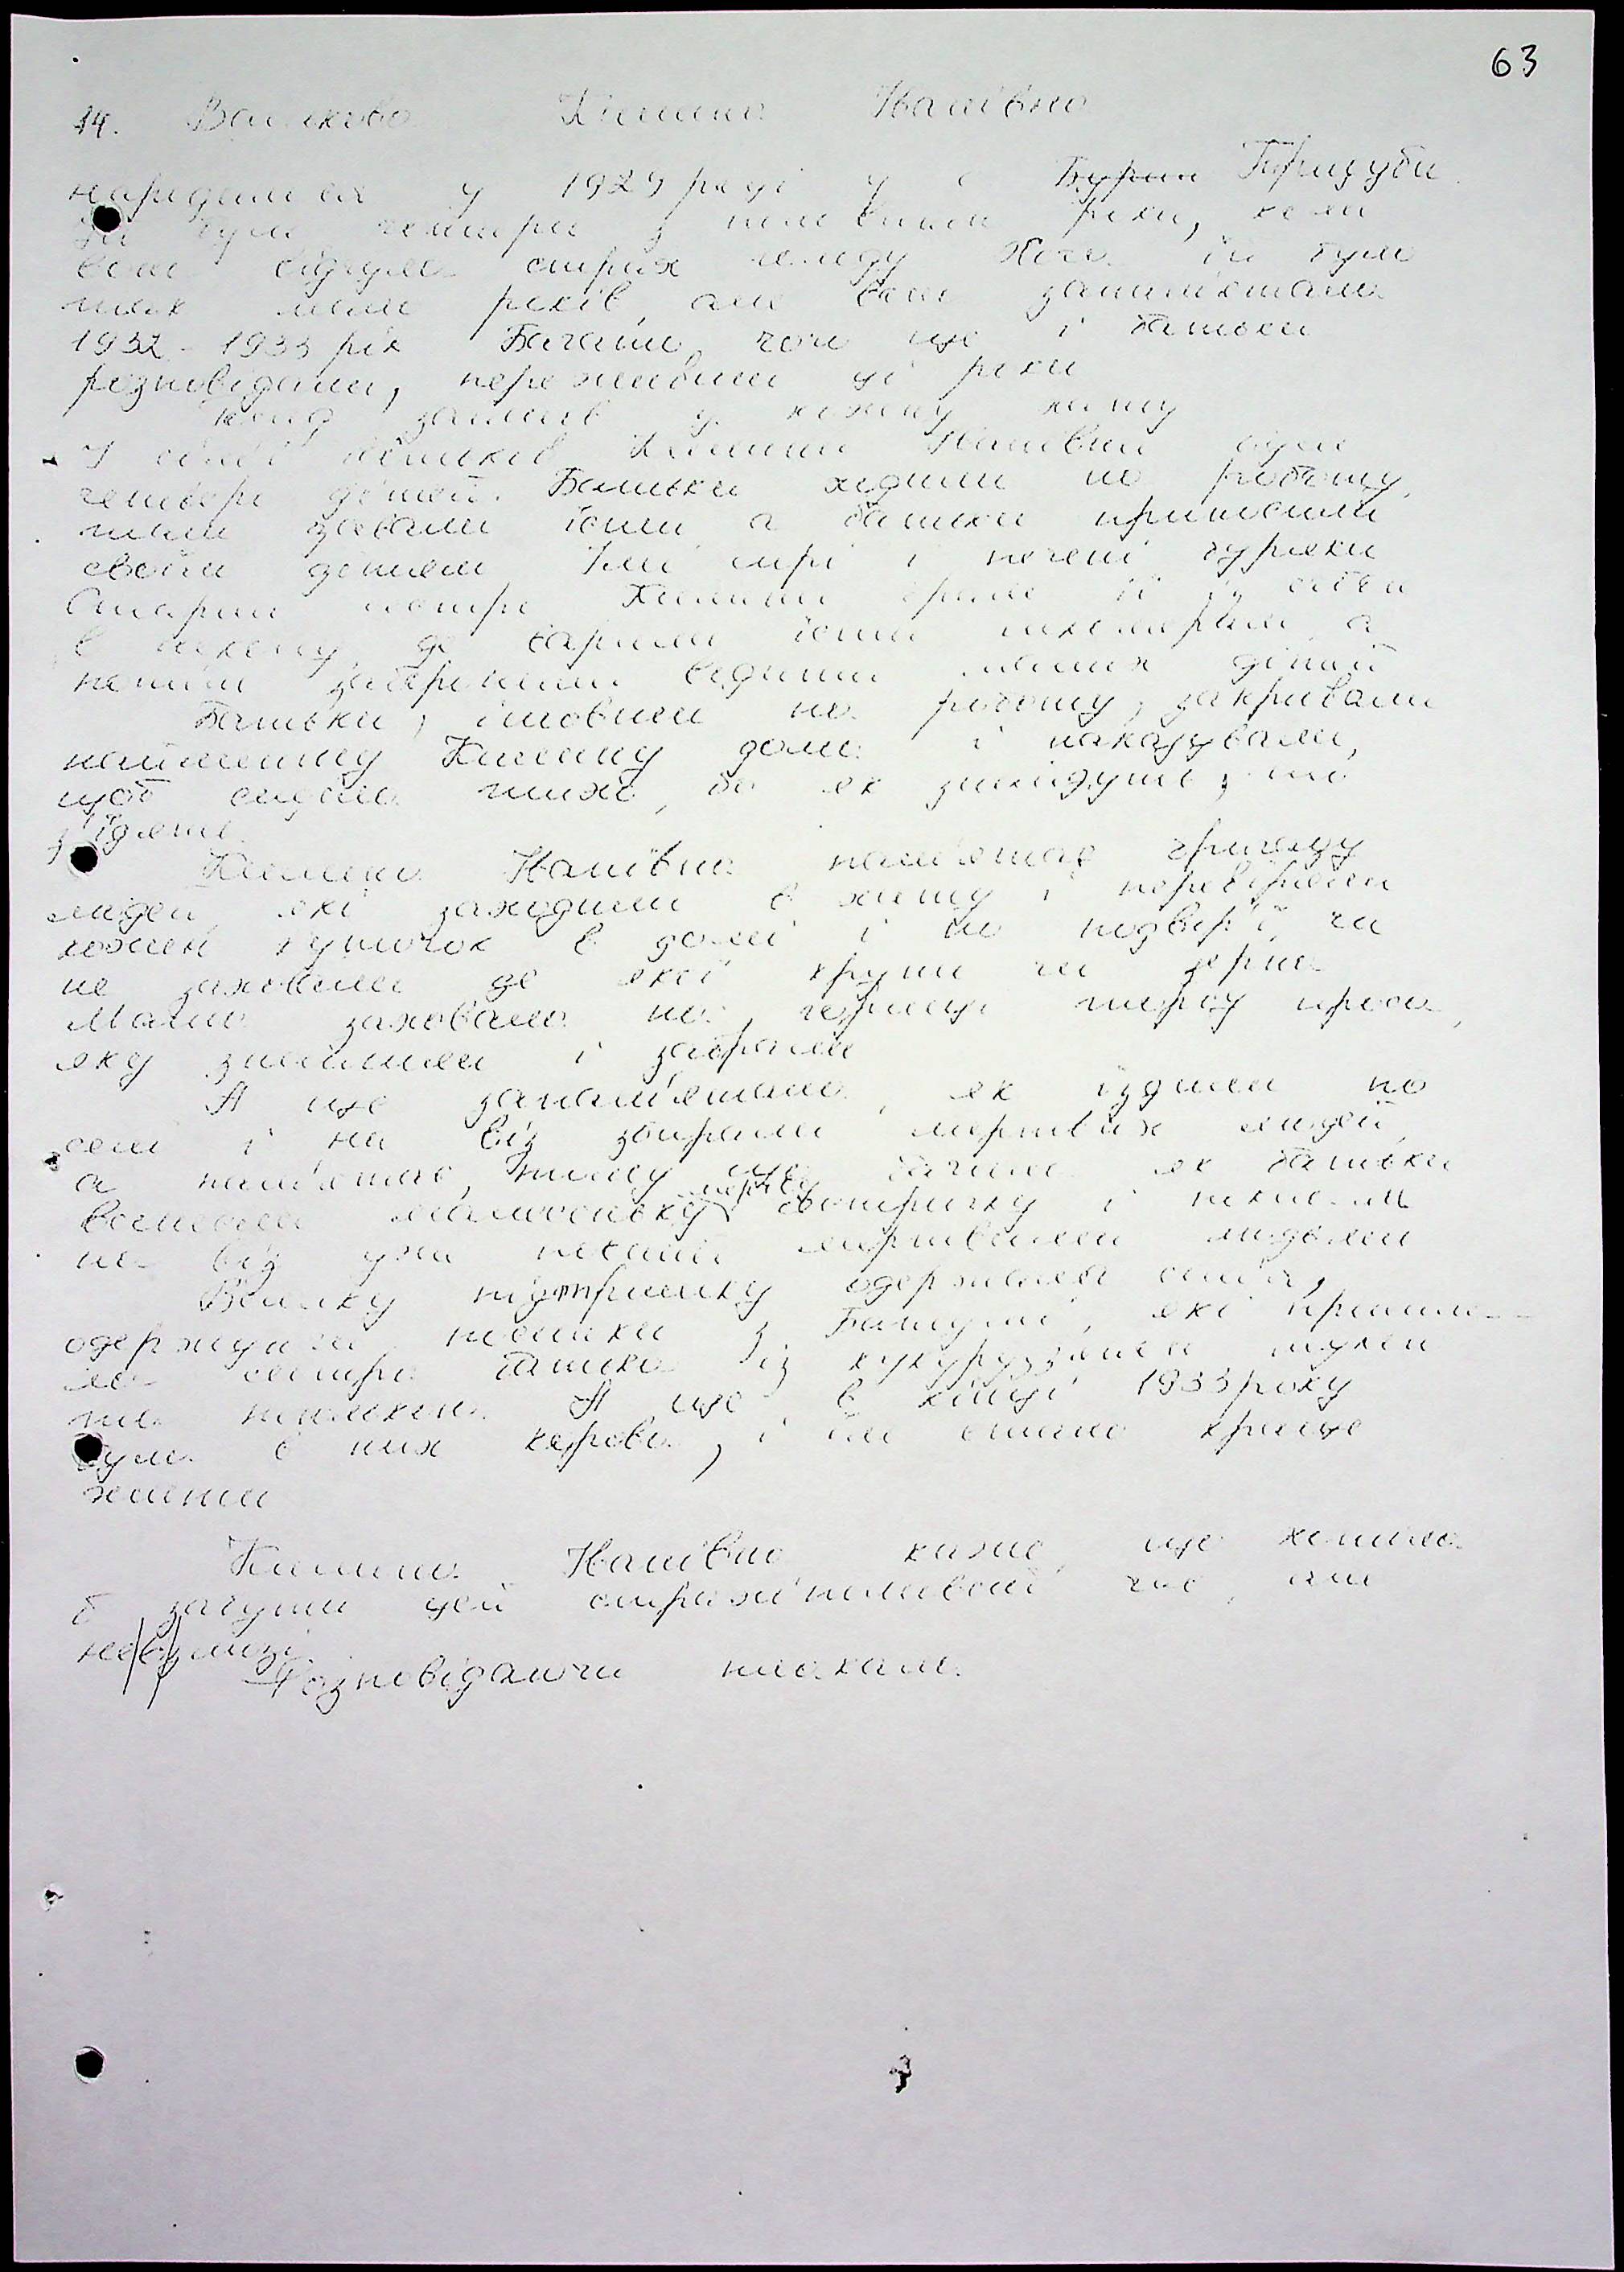 63
14. Килина Іванівна
народилася у 1929 році у с. Бурин Прицуби.
Їй було чотири з половиною роки, коли
вона відчула страх голоду. Хоча їй було
так мало років, але вона запам'ятала
1932-1933 рік. Багато, чого ще і батьки
розповідали, переживши ці роки
Голод заглянув у кожну хату
У сім'ї Килини Іванівни було
четверо дітей. Батьки ходили на роботу,
там давали їсти, а батьки приносили
своїм дітям і печені буряки
Старша сестра Килини брала її з собою
в де варили їсти школярам, а
потім заборонили водити малих дітей
Батьки, ідучи на роботу, закривали
найменшу Килину дома і наказували,
щоб сиділа тихо, бо як знайдуть, то
з'їдять.
Килина Іванівна пам'ятає бригаду
людей, які заходили в хату і перевіряли
кожен куточок в домі і на подвір'ї, чи
не заховали де якої крупи чи зерна
Мати заховала на горищі торбу проса,
яку знайшли і забрали
А ще запам'ятала, як їздили по
селі і на віз збирали мертвих людей,
а пам'ятає, тому що бачила як батьки
винесли малесеньку мертву сестричку і поклали
на віз уже повний мертвими людьми
Велику підтримку одержала сім'я,
одержуючи посилки з Батумі, які присила-
ла сестра батька із кукурудзяної муки
та А ще в кінці 1933 року
була в них корова, і їм стало краще
жити
Килина Іванівна каже, що хотіла
б забути цей страхітливий час, але
не в змозі.
Розповідаючи плакала.